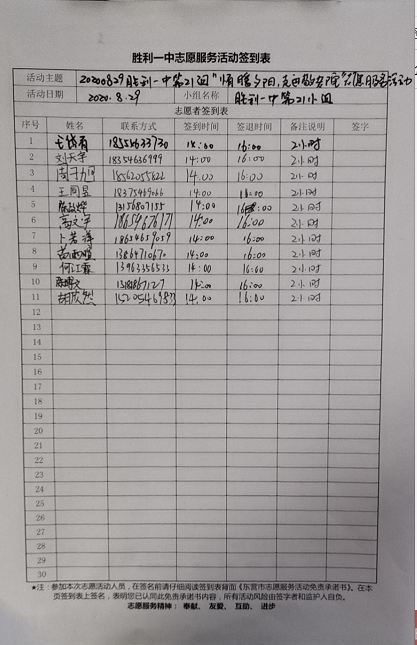 胜利一中志愿服务活动签到表
活动主题 20200829胜利一中第21组"情暖夕阳,敬老院"志愿服务活动
活动日期 2020.8.29 小组名称 胜利一中第21小组
志愿者签到表
序号 姓名 联系方式 签到时间 签退时间 备注说明 签字
1 18554633730 14:00 16:00 2小时
2 刘天宇 18354636999 14:00 16:00 2小时
3 周子九 18562055822 14:00 16:00 2小时
4 王同昱 14:00 16:00 2小时
5 13156807155 14:00 16:00 2小时
6 高文宇 18654676171 14:00 16:00 2小时
7 卜若萍 18654659059 14:00 16:00 2小时
8 13864710670 14:00 16:00 2小时
9 何江霖 13963356533 14:00 16:00 2小时
10 14:00 16:00 2小时
11 胡欣然 15205469873 14:00 16:00 2小时
12
13
14
15
16
17
18
19
20
21
22
23
24
25
26
27
28
29
30
★注:参加本次志愿活动人员,在签名前请仔细阅读签到表背面《东营市志愿服务活动免责承诺书》。在本
页签到表上签名,表明您已认同此免责承诺书内容,所有活动风险由签字者和监护人自负。
志愿服务精神:奉献、友爱、互助、进步